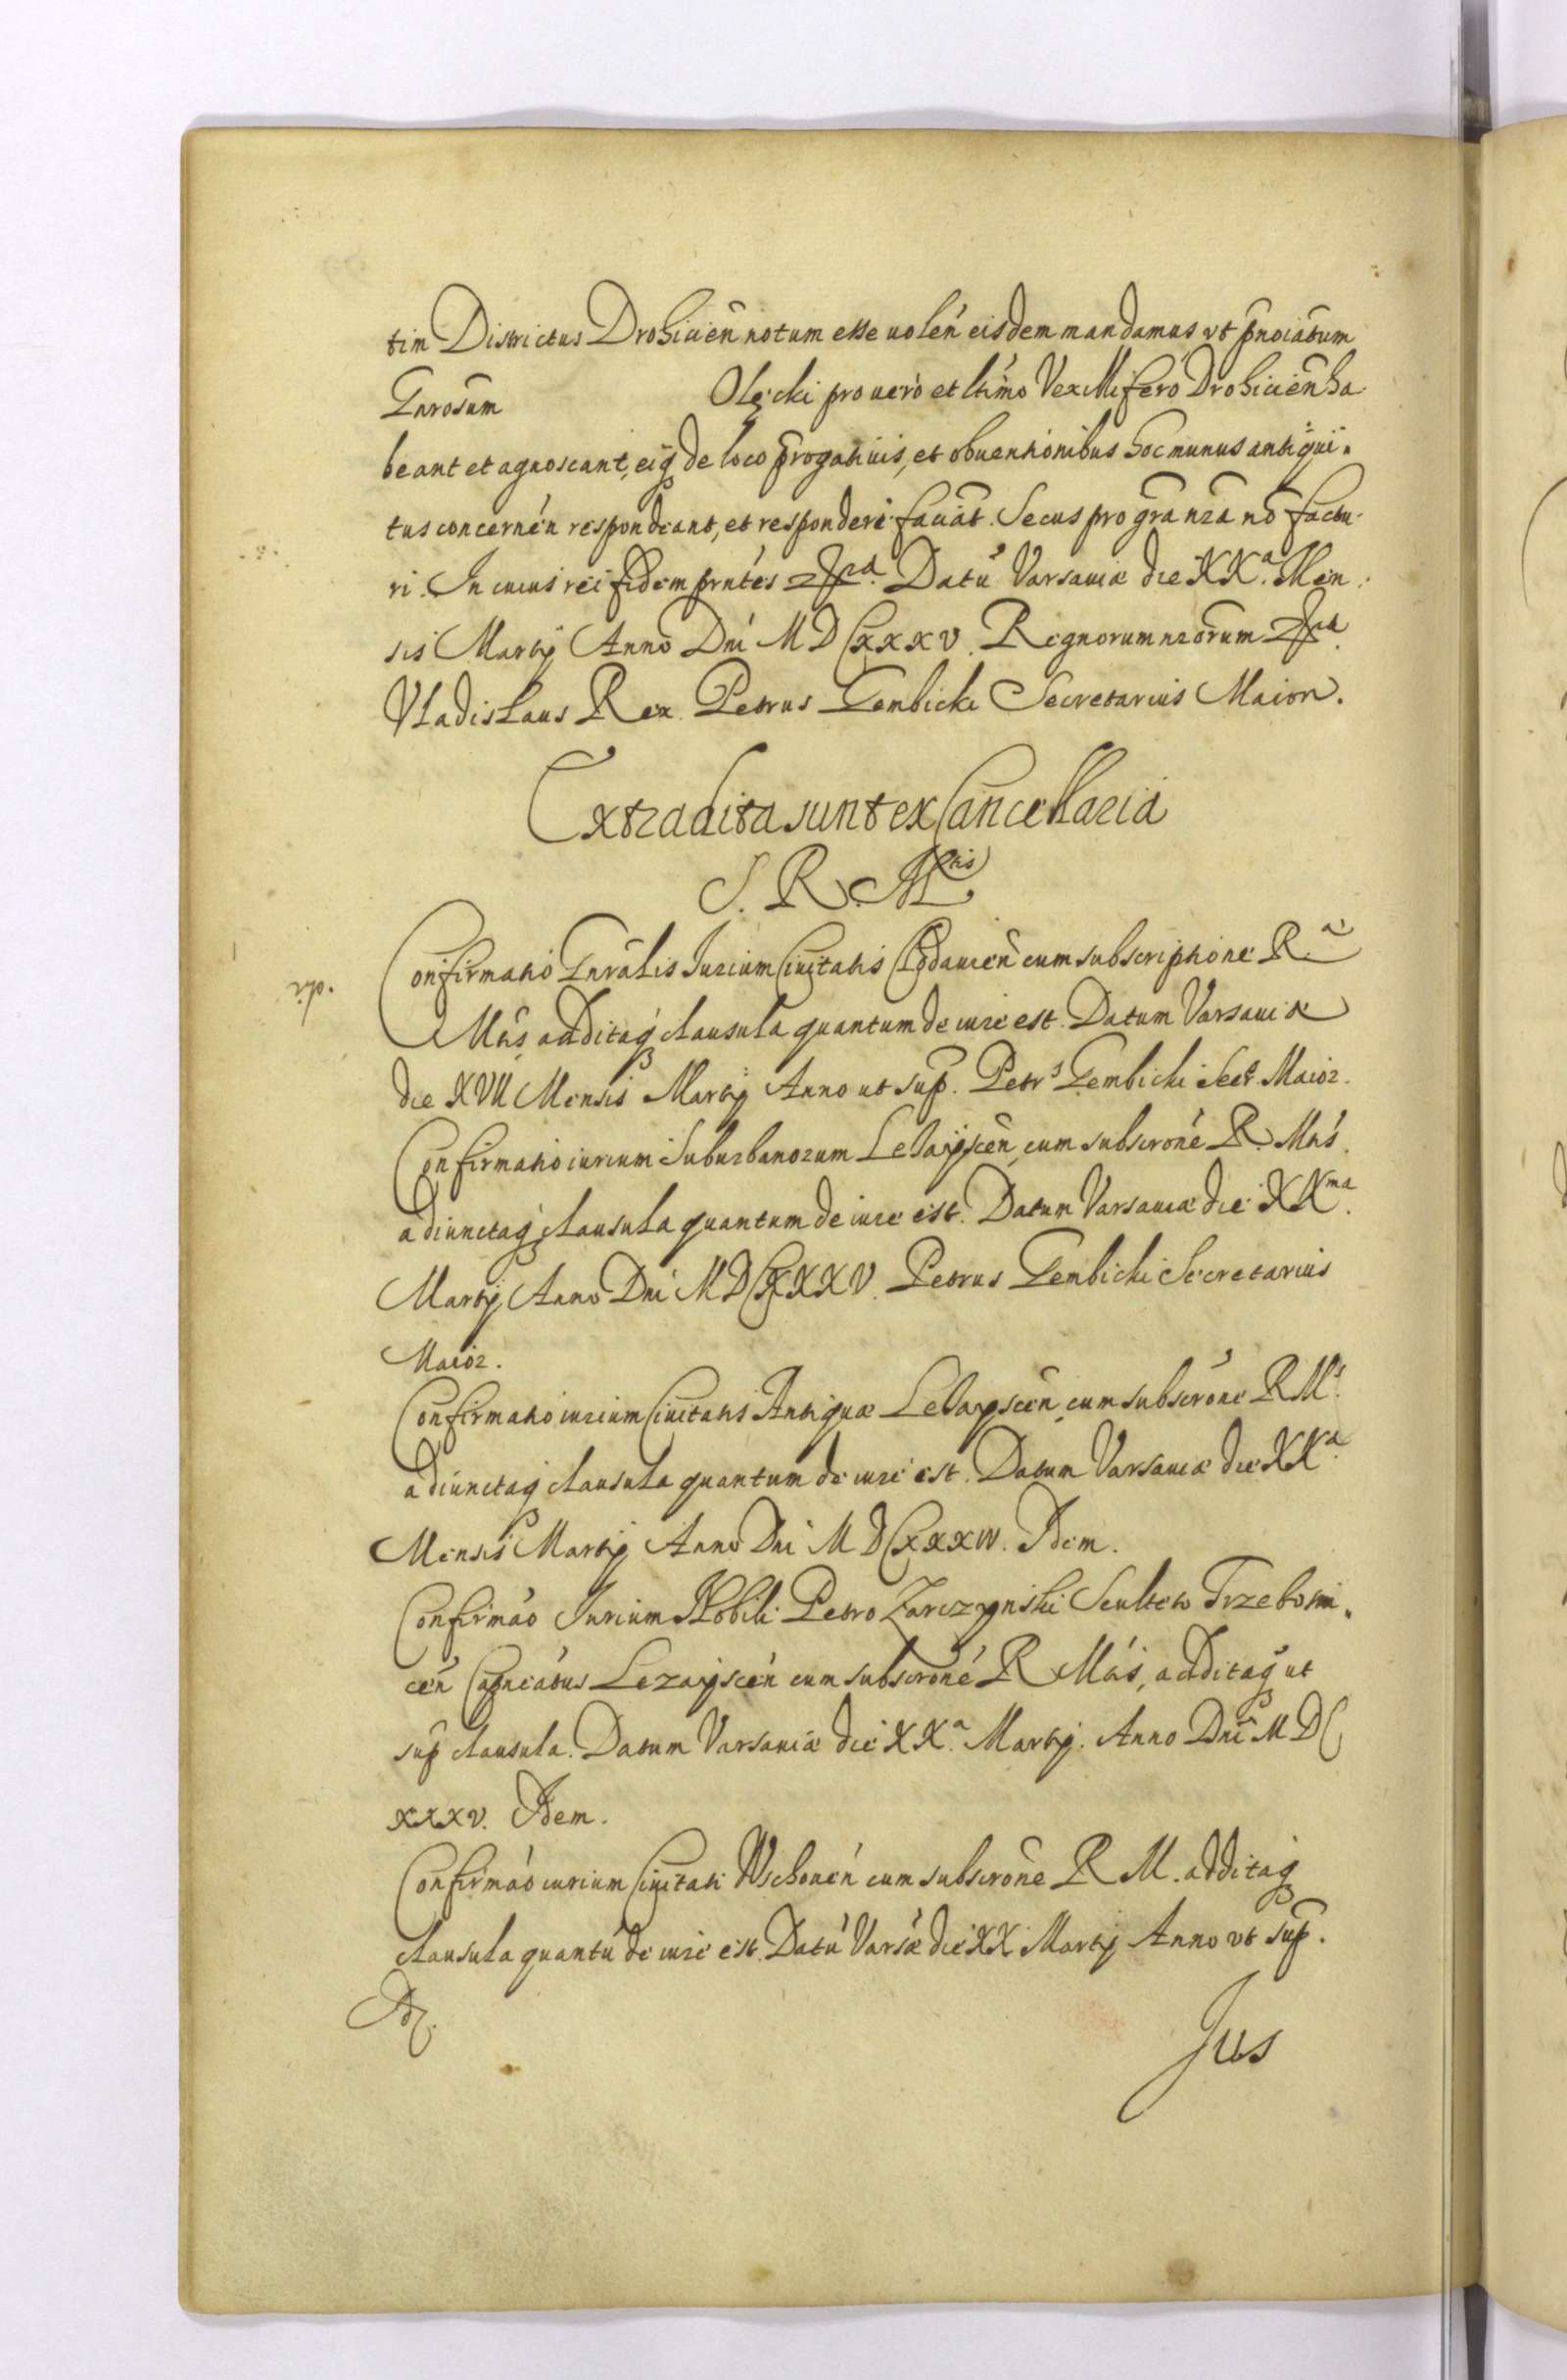 tim Districtus Drohicień notum esse uoleń eisdem mandamus vt pnoiatum
Gnrosum Olęcki pro uero et ltimo Vexillifero Drohicień ha
beant et agnoscant, eiq de loco progatiuis, et obuentionibus hoc munus antiqui-
tus concerneń respondeant, et responderi faciat. Secus pro gra nra no factu-
ri. In cuius rei fidem pntes Datu Varsauiæ die XX.a Men
sis Martij Anno Dni MDCXXXV. Regnorum nrorum
Vladislaus Rex. Petrus Gembicki Secretarius Maior.
Extradita sunt ex Cancellaria
S. R. Mtis
Confirmatio Gnralis Iurium Ciuitatis Clodauień cum subscriptione R.æ
Mtis additaq clausula quantum de iure est. Datum Varsauiæ
die XVII Mensis Martij Anno ut sup. Petrs Gembicki Secr. Maior.
Confirmatio iurium Suburbanorum Lezaysceń, cum subscrone R. Mtis
adiunctaq clausula quantum de iure est. Datum Varsauiæ die XXma.
Martij Anno Dni MDCXXXV. Petrus Gembicki Secretarius
Maior.
Confirmatio iurium Ciuitatis Antiquæ Lezaysceń cum subscrone R Ms.
adiunctaq clausula quantum de iure est. Datum Varsauiæ die XX.a
Mensis Martij Anno Dni MDCXXXIV. Idem.
Confirmao Iurium Nobili Petro Zarczynski Sculteto Trzebosni-
ceń Capneatus Lezaysceń cum subscrone R Mtis, additaq ut
sup clausula. Datum Varsauiæ die XX.a Martij. Anno Dni MDC
XXXV. Idem.
Confirmao iurium Ciuitati Wschoueń cum subscrone R M. additaq
clausula quantu de iure est. Datu Varsæ die XX Martij Anno vt sup.
Id.
Jus